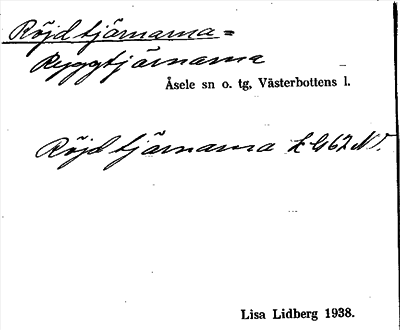 Röjdtjärnarna =
Ryggtjärnarna
Åsele sn o. tg, Västerbottens l.
Röjdtjärnarna
Lisa Lidberg 1938.